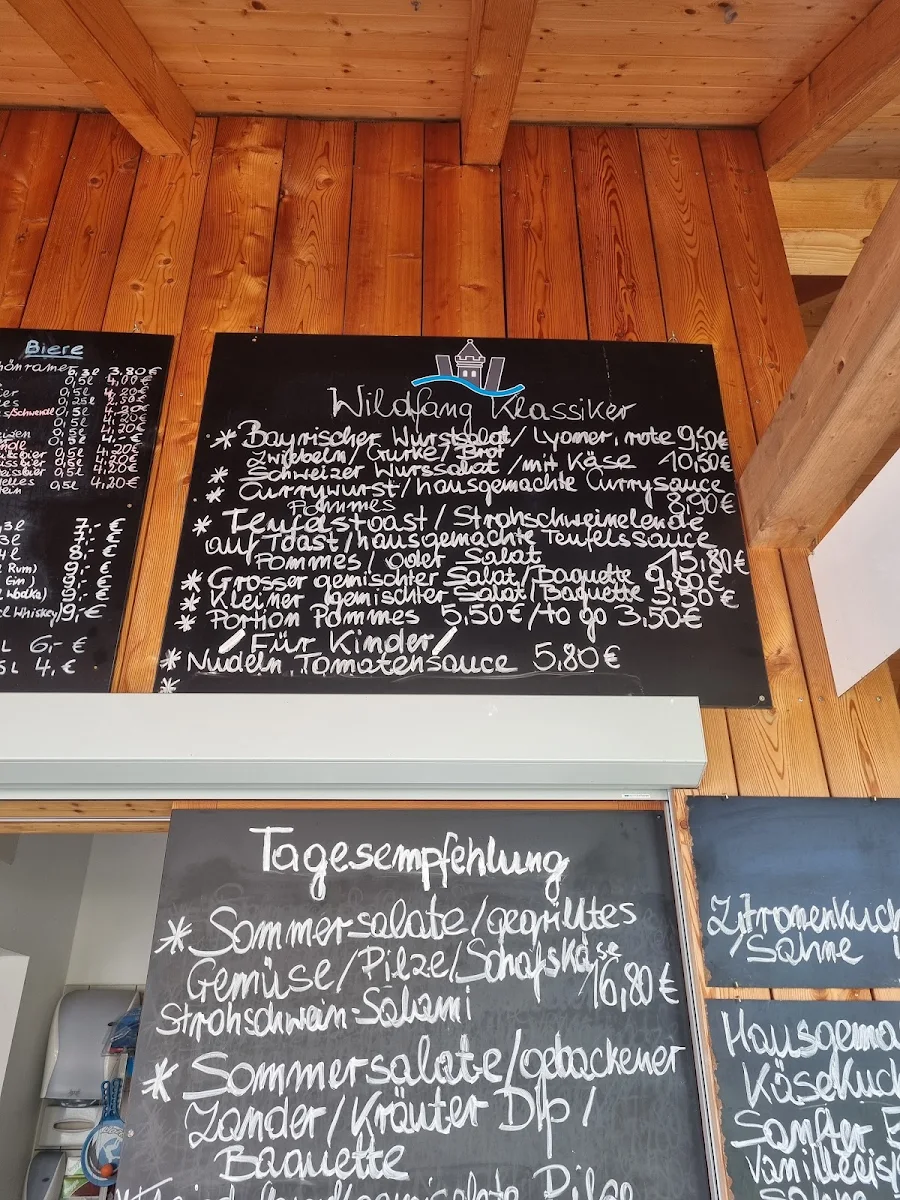 Biere
0,3l 3,80€
0,5l 4,00€
0,5l 4,20€
0,5l 4,20€
0,5l 4,20€
0,5l 4,20€
0,5l 4,20€
7,- €
7,- €
8,- €
Rum) 9,- €
Gin) 9,- €
Wodka) 9,- €
Whiskey) 9,- €
L 6,- €
5L 4,- €
Wildfang Klassiker
* Bayrischer Wurstsalat/ Lyoner, rote 9,50€
Zwiebeln/Gurke/Brot
* Schweizer Wurssalat /mit Käse 10,50€
* Currywurst/hausgemachte Currysauce
Pommes 8,90€
* Teufelstoast/Strohschweinelende
auf Toast/hausgemachte Teufelssauce
Pommes/oder Salat 15,80€
* Grosser gemischter Salat/Baguette 9,80€
* Kleiner gemischter Salat/Baguette 5,50€
* Portion Pommes 5,50€/to go 3,50€
/Für Kinder/
* Nudeln, Tomatensauce 5,80€
*
Tagesempfehlung
* Sommersalate/gegrilltes
Gemüse/Pilze/Schafskäse
16,80€
Strohschwein-Salami
* Sommersalate/gebackener
Zander/Kräuter Dip/
Baguette
Zitronenkuch
/Sahne
Hausgema
Käsekuch
Sanfter
Vanilleeis